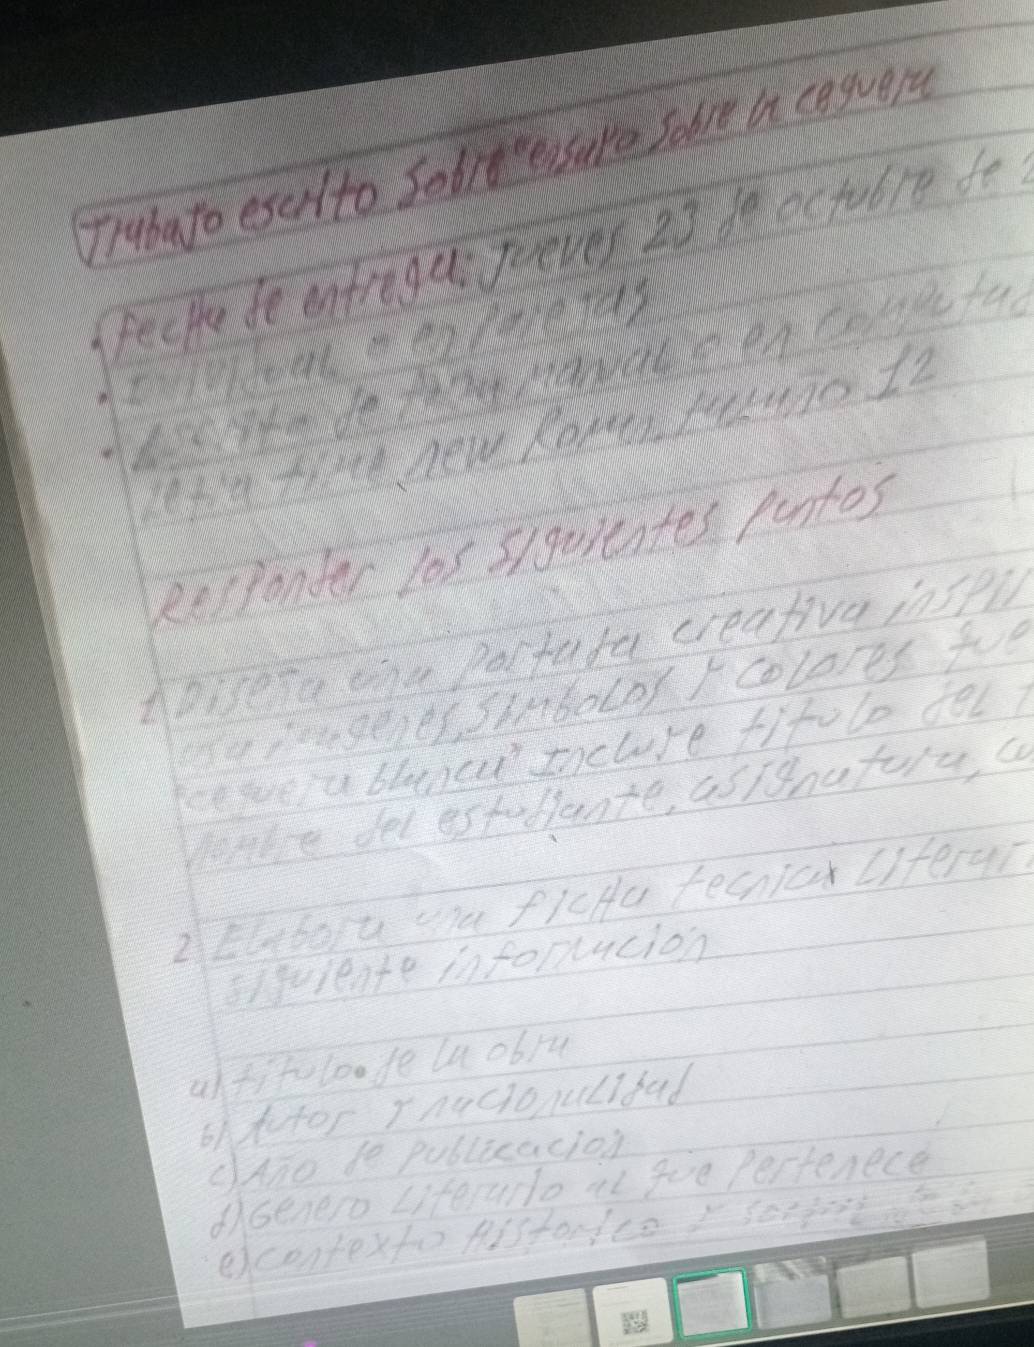 Trabajo escrito Sobre "ensayo Sobre la ceguera
Fecha de entrega: Jueves 23 de octubre de 2
Individual o en parejas
Escrito de forma manual o en computad
Letra times new Roman, tamaño 12
Responder los siguientes puntos
1 Diseña una Portada creativa inspir
usa imagenes, simbolos y colores que
ceguera blanca" Incluye titulo del
nombre del estudiante, asignatura,
2 Elabora una ficha tecnica Literari
siguiente información
a) titulo de la obra
b) Autor y nacionalidad
c) Año de publicación
d) Genero Literario al que Pertenece
e) contexto Historico y